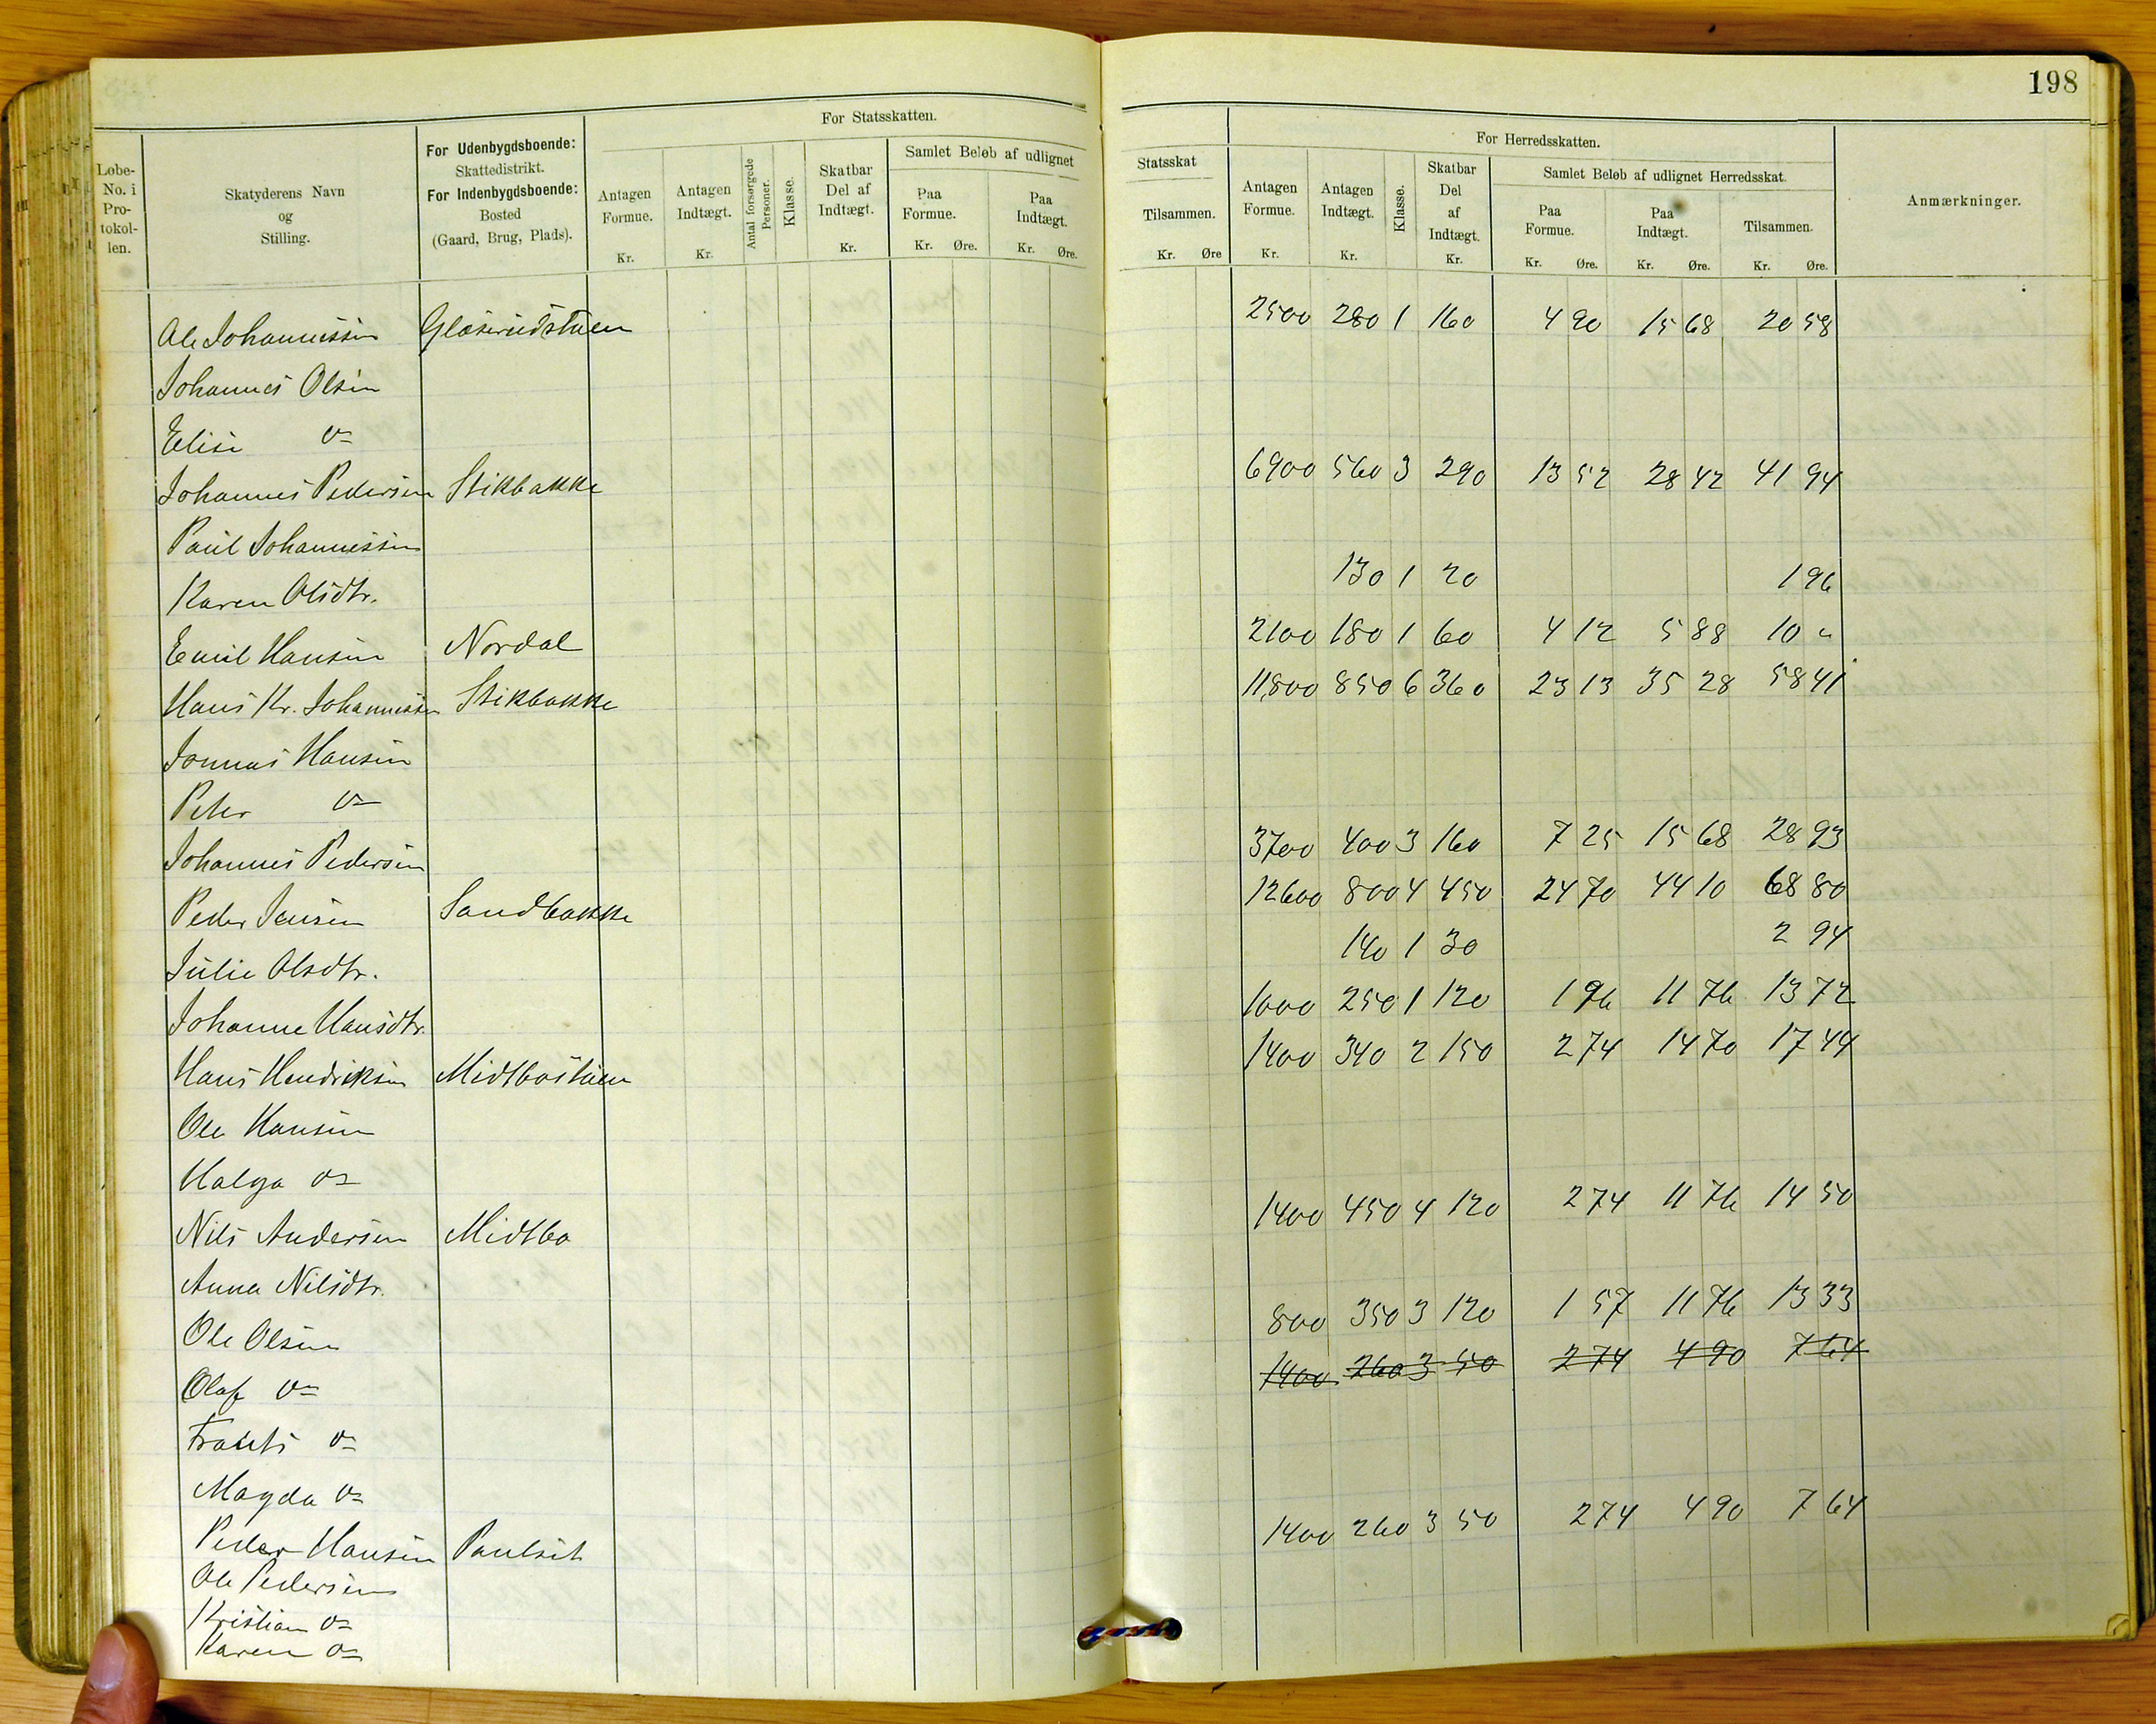 198
For Statsskatten.
For Herredsskatten.
Løbe-No. i Pro-tokol-len.
Skatyderens Navn og Stilling.
For Udenbygdsboende: Skattedistrikt. For Indenbygdsboende: Bosted (Gaard, Brug, Plads).
Antagen Formue. Kr.
Antagen Indtægt. Kr.
Antal forsørgede Personer.
Klasse.
Skatbar Del af Indtægt. Kr.
Samlet Beløb af udlignet
Paa Formue. Kr. Øre.
Paa Indtægt. Kr. Øre.
Statsskat
Tilsammen. Kr. Øre
Antagen Formue. Kr.
Antagen Indtægt. Kr.
Klasse.
Skatbar Del af Indtægt. Kr.
Samlet Beløb af udlignet Herredsskat.
Paa Formue. Kr. Øre.
Paa Indtægt. Kr. Øre.
Tilsammen. Kr. Øre.
Anmærkninger.
Ole Johannessen Glæserudstuen 2500 280 1 160 4 90 15 68 20 58
Johannes Olsen
Elise do
Johannes Pedersen Stikbakke 6900 560 3 290 13 52 28 42 41 94
Paul Johannessen
Karen Olsdtr. 130 1 20 1 96
Emil Hansen Nordal 2100 180 1 60 4 12 5 88 10 "
Hans Kr. Johannessen Stikbakke 11,800 850 6 360 23 13 35 28 58 41
Jonnas Hansen
Peter do
Johannes Pedersen 3700 400 3 160 7 25 15 68 28 93
Peder Jensen Sandbakke 12600 800 4 450 24 70 44 10 68 80
Julie Olsdtr. 140 1 30 2 94
Johanne Hansdtr. 1000 250 1 120 1 96 11 76 13 72
Hans Hendriksen Midtbøstuen 1400 340 2 150 2 74 14 70 17 44
Ole Hansen
Halga do
Nils Andersen Midtbø 1400 450 4 120 2 74 11 76 14 50
Anna Nilsdtr.
Ole Olsen 800 350 3 120 1 57 11 76 13 33
Olaf do 1400 260 3 50 2 74 4 90 7 64
Frants do
Magda do
Peder Hansen Paulsit 1400 260 3 50 2 74 4 90 7 64
Ole Pedersen
Kristian do
Karen do